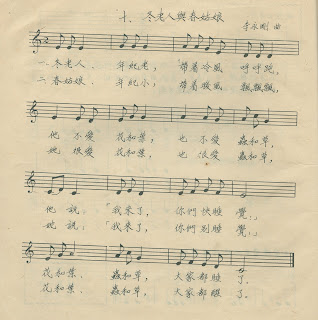 十、冬老人與春姑娘
李永剛 曲
一.冬老人, 年紀老, 帶着冷風 呼呼跑,
二.春姑娘, 年紀小, 帶着微風 飄飄飄,
他不愛 花和葉, 也不愛 蟲和草,
她很愛 花和葉, 也很愛 蟲和草,
他說:「我來了, 你們快睡覺」,
她說:「我來了, 你們別睡覺」,
花和葉, 蟲和草, 大家都睡了.
花和葉, 蟲和草, 大家都醒了.